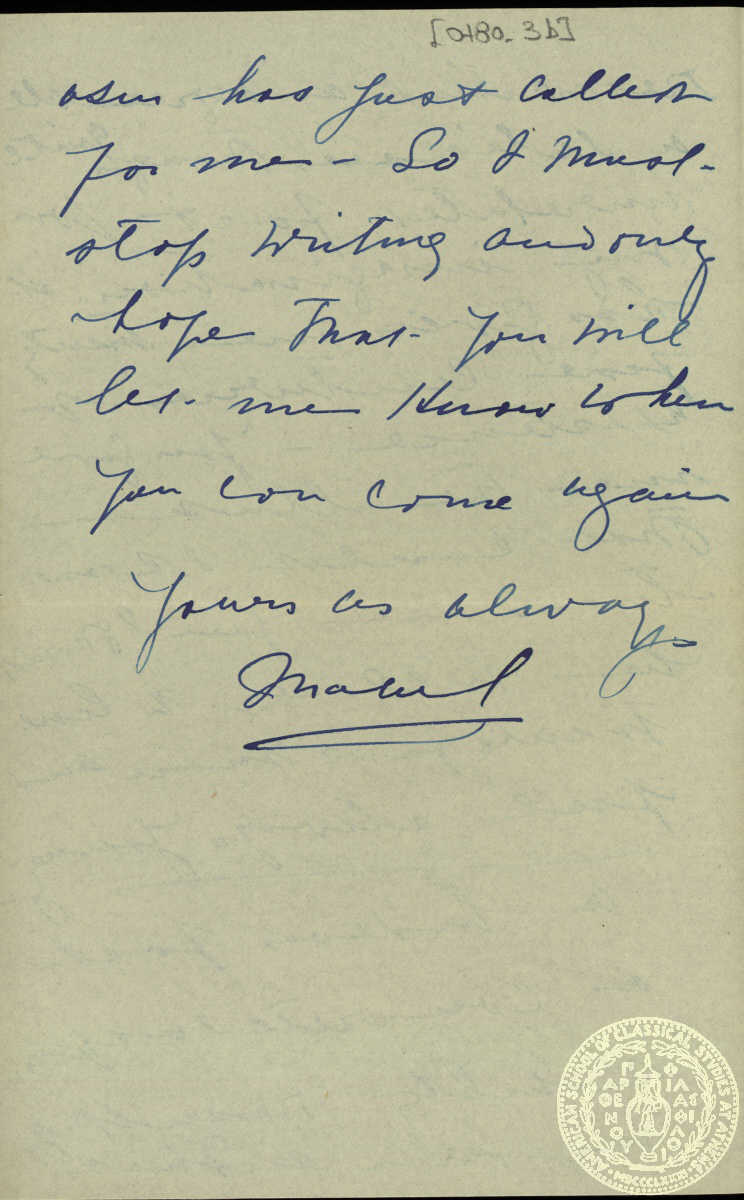 [0480_3b]
has just called
for me - So I must
stop writing and only
hope that you will
let me know when
you can come again
Yours as always
Mabel
AMERICAN SCHOOL OF CLASSICAL STUDIES AT ATHENS
ΠΑΡΘΕΝΟΥ ΦΙΛΑΣ ΦΙΛΟΙ
MDCCCLXXXI